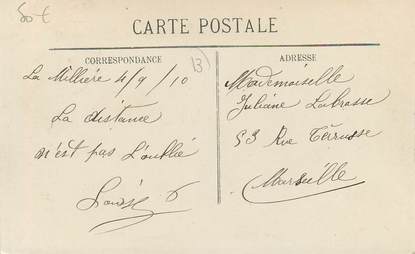 50 €
CARTE POSTALE
CORRESPONDANCE
13
La Millière 4/9/10
La distance
n'est pas L'oublie
Louise G
ADRESSE
Mademoiselle
Juliane Labrosse
53 Rue Terrusse
Marseille